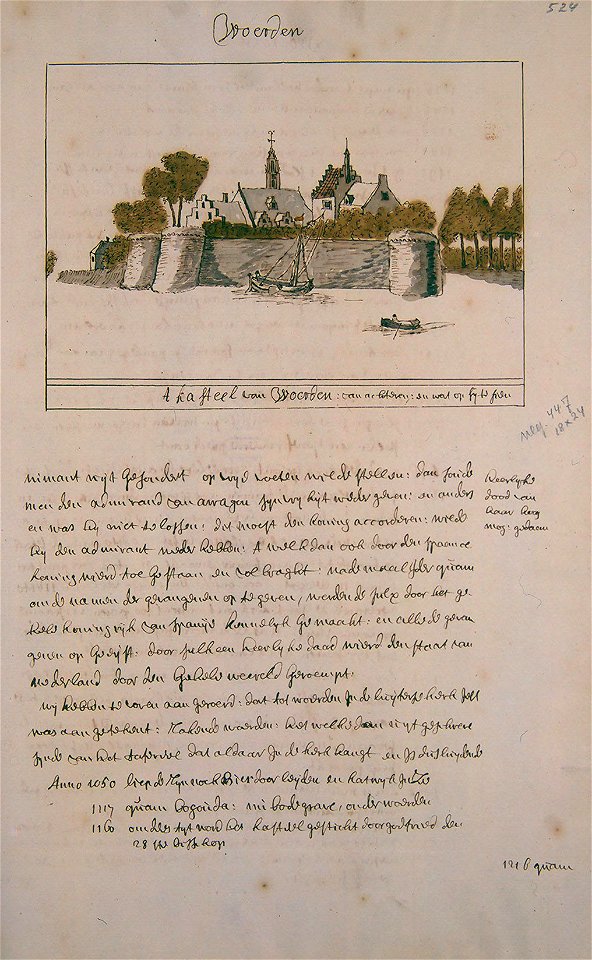 524
Woerden
t kasteel van Woerden: van achteren: en wat op zy te sien
neg. 447
18 x 24
nimant uijt Gesondert op vrijd voeten wilde stellen: dan soude
men den admirand van arragon syn vryhijt weder geven: en anders
en was hij niet te lossen: dit moest den koning accorderen: wilde
hij den admirant weder hebben: t welk dan ook door den spaance
koning wierd toe Gestaan en volbraght: nademaal jder quam
om de namen der gevangenen op te geven, werdende sulx door het ge
hele koningrijk van spanje kennelijk Gemaakt: en alle de gevan
genen op Geeijst: door sulk een heerlijke daad wierd den staat van
nederland door den Gehele weereld Geroempt.
heerlijke
daad van
haar hoog
mog: gedaen
wij hebben te voren aan geroerd: dat tot woerden in de luijterse kerk
was aan getekent: Rakende woerden: het welke dan uijt geschreven
synde van het tafereel dat aldaar in de kerk hangt en is dus luijdende
Anno 1050 liep de Ryn noch hier door leyden en katwyk in Zee
1117 quam bogonda: in bodegrave, onder woerden
1160 omdees tyt word het kasteel gesticht door godfried den
28ste bisschop
1216 quam